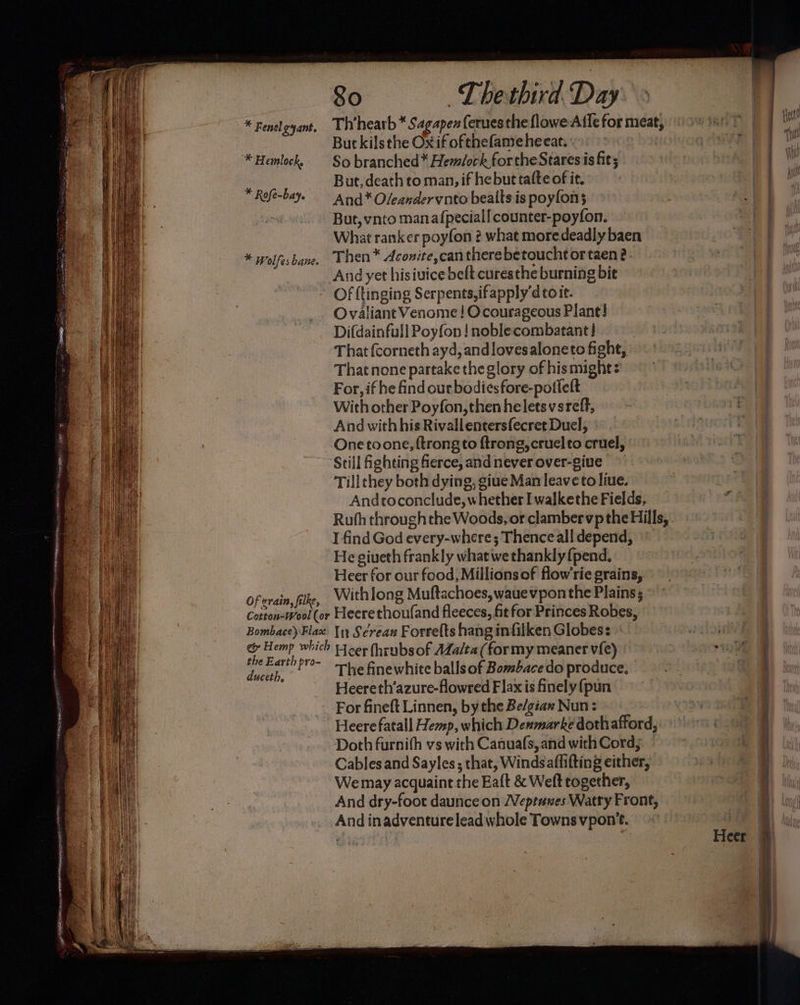 80 The third Day
* Fenel gyant. Th'hearb * Sagapen ſerues the ſlowe Aſſe for meat,
But kils the Ox if of the ſame he eat.
* Hemlock, So branched * Hemlock for the Stares is fit;
But, death to man, if he but taſte of it.
* Roſe-bay. And * Oleander vnto beaſts is poyſon;
But, vnto man a ſpeciall counter-poyſon.
What ranker poyſon? what more deadly baen
* Wolfes bane. Then * Aconite, can there be toucht or taen?
And yet his iuice beſt cures the burning bit
Of ſtinging Serpents, if apply'd to it.
O valiant Venome! O courageous Plant!
Diſdainfull Poyſon! noble combatant!
That ſcorneth ayd, and loves alone to fight,
That none partake the glory of his might:
For, if he find our bodies fore-poſſeſt
With other Poyſon, then he lets vs reſt,
And with his Rivall enters ſecret Duel,
One to one, ſtrong to ſtrong, cruel to cruel,
Still fighting fierce, and never over-giue
Till they both dying, giue Man leave to liue.
And to conclude, whether I walke the Fields,
Ruſh through the Woods, or clamber vp the Hills,
I find God every-where; Thence all depend,
He giueth frankly what we thankly ſpend.
Heer for our food, Millions of flow'rie grains,
Of grain, ſilke, With long Muſtachoes, waue vpon the Plains;
Cotton-Wool (or Heere thouſand fleeces, fit for Princes Robes,
Bombace) Flax In Sérean Forreſts hang in ſilken Globes:
& Hemp which Heer ſhrubs of Malta (for my meaner vſe)
the Earth pro- The fine white balls of Bombace do produce.
duceth. Heere th'azure-flowred Flax is finely ſpun
For fineſt Linnen, by the Belgian Nun:
Heere fatall Hemp, which Denmarke doth afford,
Doth furniſh vs with Canuaſs, and with Cord;
Cables and Sayles; that, Winds aſſiſting either,
We may acquaint the Eaſt & Weſt together,
And dry-foot daunce on Neptunes Watry Front,
And in adventure lead whole Towns vpon't.
Heer